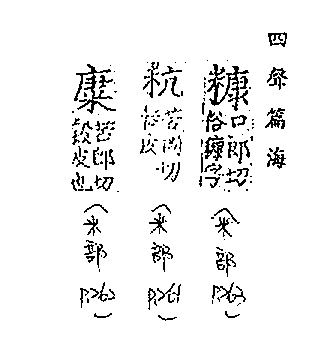 四聲篇海
糠口郎切
俗穅字
(米部
P.263)
粇苦岡切
俗皮
(米部
P.261)
穅苦郎切
穀皮也
(米部
P.262)